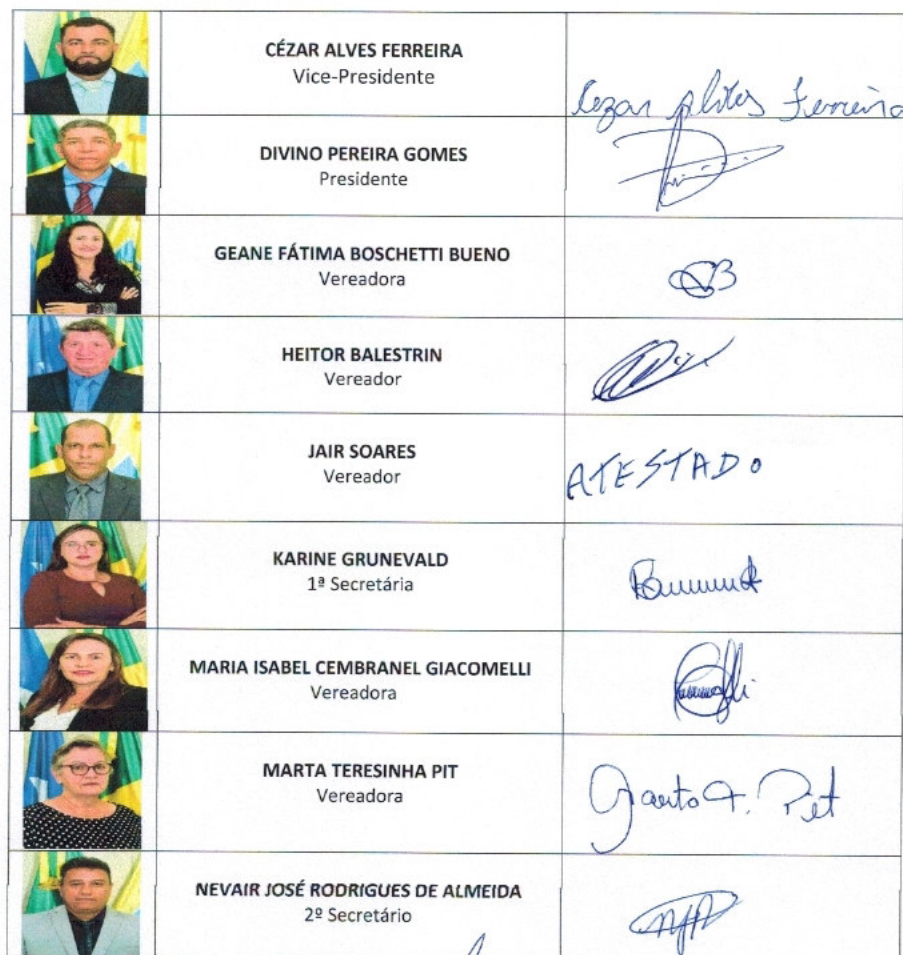 CÉZAR ALVES FERREIRA
Vice-Presidente
Cezar Alves Ferreira
DIVINO PEREIRA GOMES
Presidente
GEANE FÁTIMA BOSCHETTI BUENO
Vereadora
HEITOR BALESTRIN
Vereador
JAIR SOARES
Vereador
ATESTADO
KARINE GRUNEVALD
1ª Secretária
MARIA ISABEL CEMBRANEL GIACOMELLI
Vereadora
MARTA TERESINHA PIT
Vereadora
Marta T. Pit
NEVAIR JOSÉ RODRIGUES DE ALMEIDA
2º Secretário